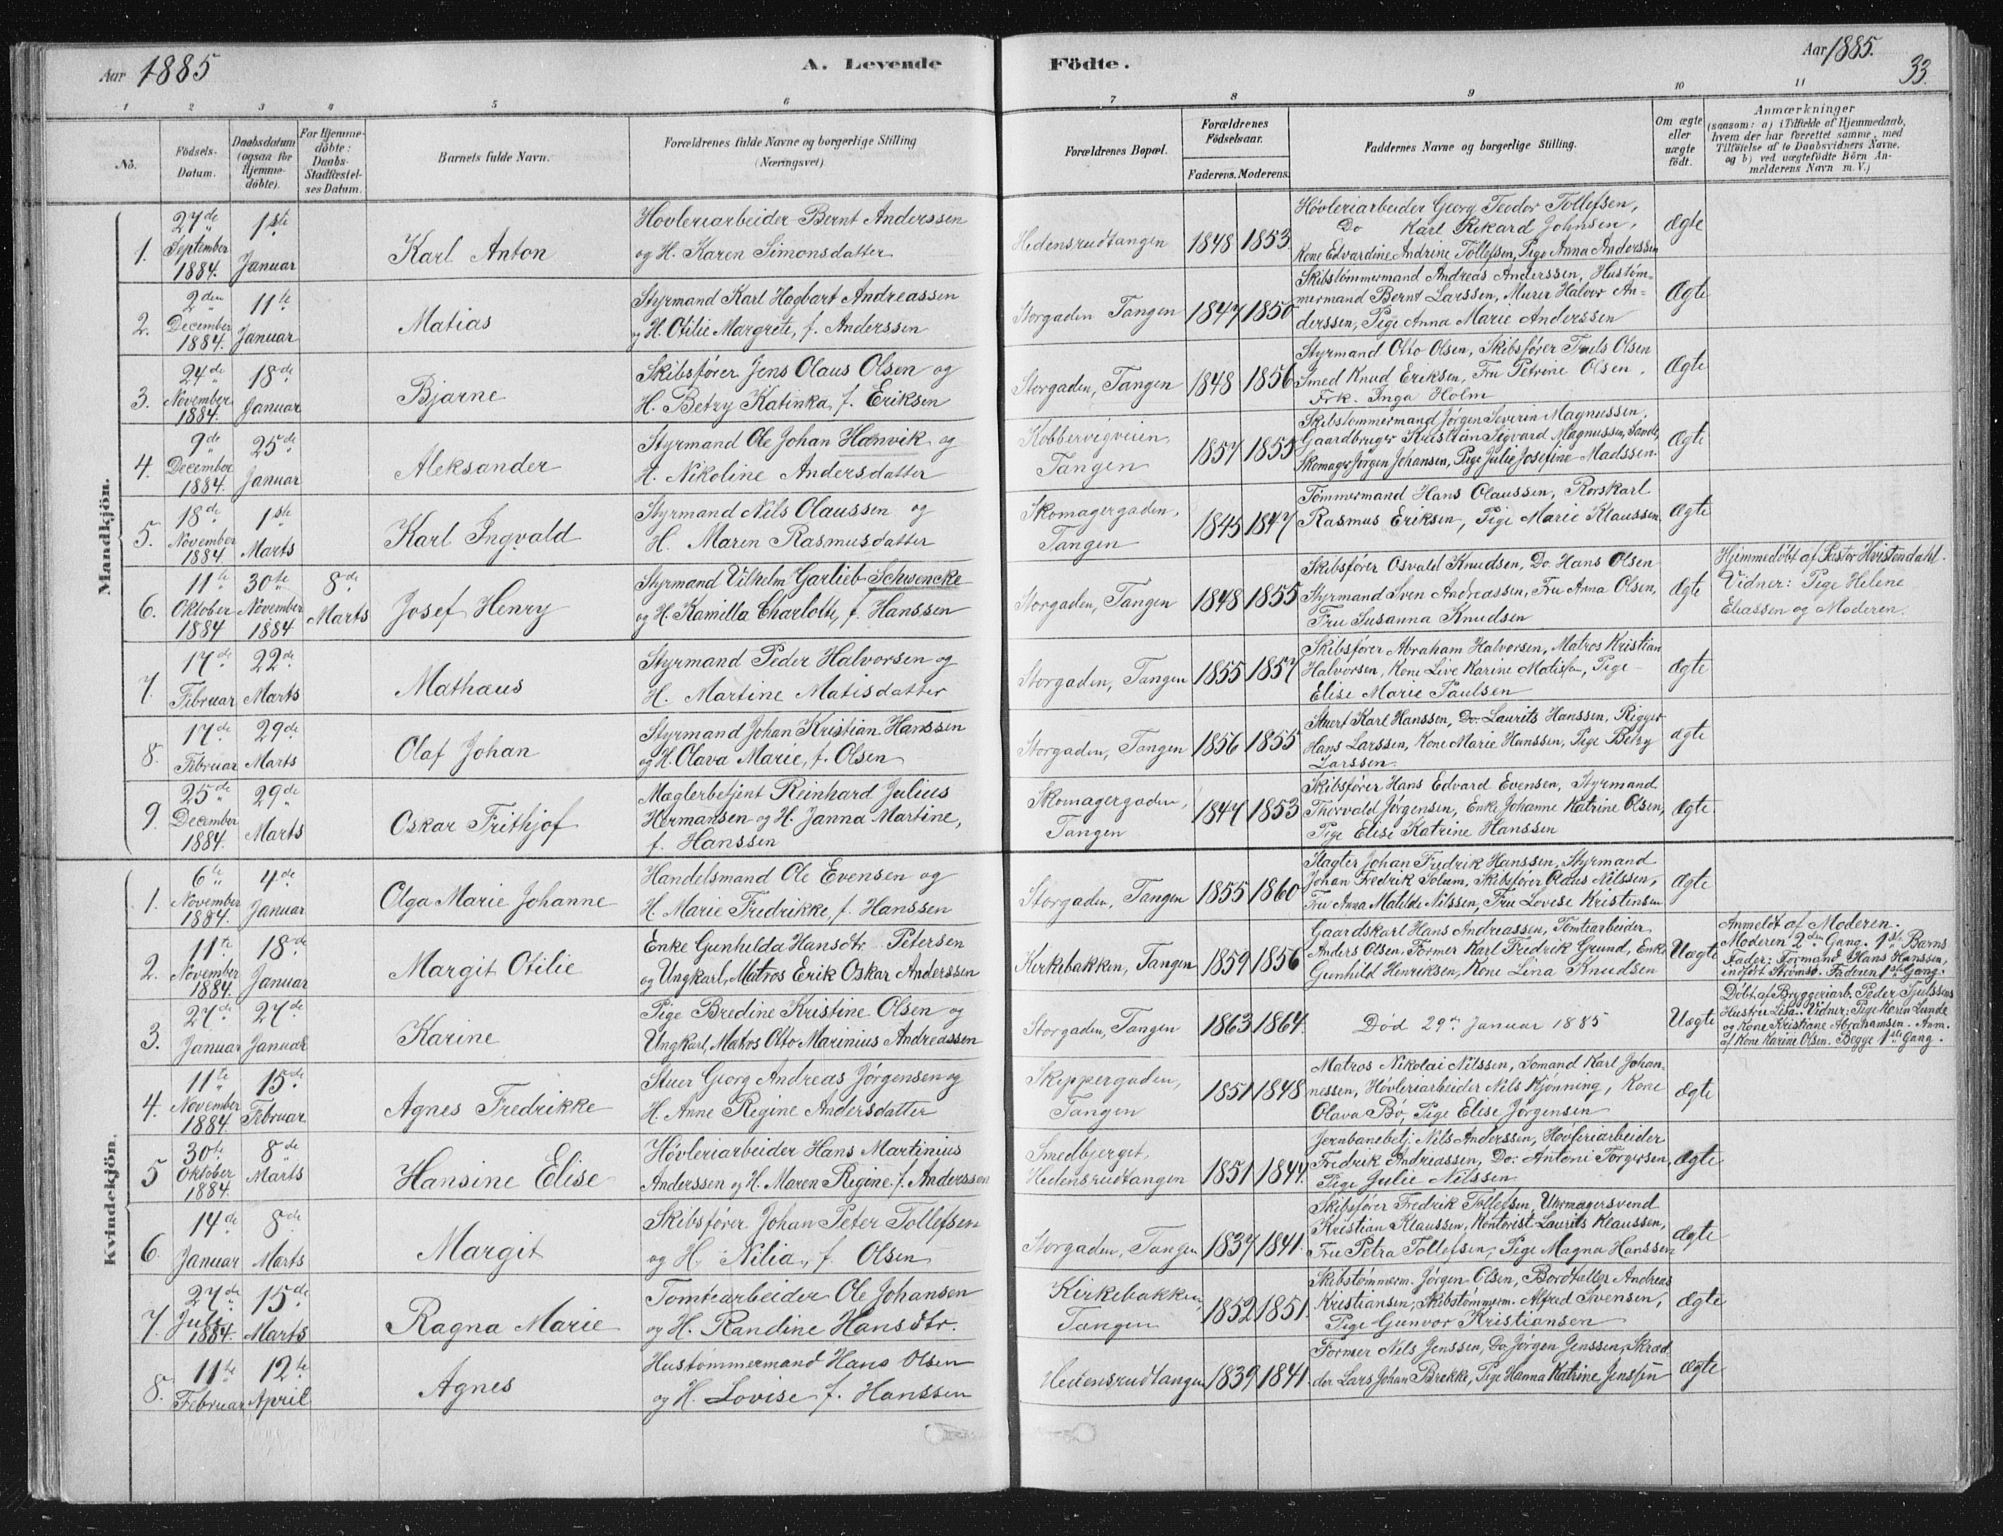 Aar 1885
A. Levende Födte.
Aar 1885.
33.
1 2 3 4 5 6 7 8 9 10 11
No.
Födsels-Datum.
Daabsdatum (ogsaa for Hjemmedöbte).
For Hjemmedöbte: Daabs-Stadfæstelses Datum.
Barnets fulde Navn.
Forældrenes fulde Navne og borgerlige Stilling (Næringsvei).
Forældrenes Bopæl.
Forældrenes Födselsaar.
Faderens. Moderens.
Faddernes Navne og borgerlige Stilling.
Om ægte eller uægte födt.
Anmærkninger
(saasom: a) i Tilfælde af Hjemmedaab,
hvem der har forrettet samme, med
Tilföielse af to Daabsvidners Navne,
og b) ved uægtefödte Börn An-
melderens Navn m. V.)
Mandkjön.
1. 27de September 1884. 1ste Januar
Karl Anton
Høvleriarbeider Bernt Anderssen
og H. Karen Simonsdatter
Hedensrudtangen 1848 1853
Høvleriarbeider Georg Teodor Tollefsen,
Do Karl Rikard Johnsen,
Kone Edvardine Andrine Tollefsen, Pige Anna Anderssen
Ægte
2. 2den December 1884. 11te Januar
Matias
Styrmand Karl Hagbart Andreassen
og H. Otilie Margrete, f. Anderssen
Storgaden Tangen 1847 1850
Skibstømmermand Andreas Anderssen, Hustøm-
mermand Bernt Larssen, Murer Halvor An-
derssen, Pige Anna Marie Anderssen
Ægte
3. 24de November 1884 18de Januar
Bjarne
Skibsfører Jens Olaus Olsen og
H. Betzy Katinka, f. Eriksen
Storgaden, Tangen 1848 1856
Styrmand Otto Olsen, Skibsfører Truls Olsen
Smed Knud Eriksen, Fru Petrine Olsen,
Frk. Inga Holm
Ægte
4. 9de December 1884 25de Januar
Aleksander
Styrmand Ole Johan Hamvik og
H. Nikoline Andersdatter
Kobbervigveien, Tangen 1857 1855
Skibstømmermand Jørgen Severin Magnussen,
Gaardbruger Kristian Sigvard Magnussen, Sande,
Skomager Jørgen Johansen, Pige Julie Josefine Madssen.
Ægte
5. 18de November 1884 1ste Marts
Karl Ingvald
Styrmand Nils Olaussen og
H. Maren Rasmusdatter
Skomagergaden, Tangen 1845 1847
Tømmermand Hans Olaussen, Rorskarl
Rasmus Eriksen, Pige Marie Klaussen.
Ægte
6. 11te Oktober 1884 30te November 1884 8de Marts
Josef Henry
Styrmand Vilhelm Garlieb Schwencke
og H. Kamilla Charlotte, f. Hanssen
Storgaden, Tangen 1848 1855
Skibsfører Osvald Knudsen, Do. Hans Olsen
Styrmand Sven Andreassen, Fru Anna Olsen,
Fru Susanna Knudsen
Ægte
Hjemmedøbt af Pastor Hvistendahl.
Vidner: Pige Helene
Eliassen og Moderen.
7. 17de Februar 22de Marts
Mathæus
Styrmand Peder Halvorsen og
H. Martine Matisdatter
Storgaden, Tangen 1855 1857
Skibsfører Abraham Halvorsen, Matros Kristian
Halvorsen, Kone Live Karine Matisen, Pige
Elise Marie Paulsen
Ægte
8. 17de Februar 29de Marts
Olaf Johan
Styrmand Johan Kristian Hanssen
og H. Olava Marie, f. Olsen
Storgaden, Tangen 1856 1855
Stuert Karl Hanssen, Do. Laurits Hanssen, Rigger
Hans Larssen, Kone Marie Hanssen, Pige Betzy
Larssen
Ægte
9. 25de December 1884. 29de Marts
Oskar Frithjof
Mæglerbetjent Reinhard Julius
Hermansen og H. Janna Martine,
f. Hanssen
Skomagergaden, Tangen 1847 1853
Skibsfører Hans Edvard Evensen, Styrmand
Thorvald Jørgensen, Enke Johanne Katrine Olsen,
Pige Elise Katrine Hanssen
Ægte
Kvindekjön.
1. 6te November 1884. 4de Januar
Olga Marie Johanne
Handelsmand Ole Evensen og
H. Marie Fredrikke, f. Hanssen
Storgaden, Tangen 1855 1860
Slagter Johan Fredrik Hanssen, Styrmand
Johan Fredrik Solum, Skibsfører Olaus Nilssen,
Fru Anna Matilde Nilssen, Frue Lovise Kristinsen
Ægte
2. 11te November 1884. 18de Januar
Margit Otilie
Enke Gunhilda Hansdtr. Petersen
og Ungkarl, Matros Erik Oskar Anderssen
Kirkebakken, Tangen 1859 1856
Gaardskarl Hans Andreassen, Tomtearbeider
Anders Olsen, Former Karl Fredrik Grund, Enke
Gunhild Henriksen, Kone Lina Knudsen
Uægte
Anmeldt af Moderen.
Moderen 2den Gang. 1ste Barns
Fader: Formand Hans Hanssen,
indført Strømsø. Faderen 1ste Gang.
3. 27de Januar 27de Januar
Karine
Pige Bredine Kristine Olsen og
Ungkarl, Matros Otto Marinius Andreassen
Storgaden, Tangen 1863 1864.
Død 29de Januar 1885
Uægte
Døbt af Bryggeriarb. Peder
Hustru Lisa. Vidner: Pige Karin Lunde
og Kone Kristiane Abrahamsen. Anm.
af Kone Karine Olsen. Begge 1ste Gang.
4. 11te November 1884. 15de Februar
Agnes Fredrikke
Stuer Georg Andreas Jørgensen og
H. Anne Regine Andersdatter
Skippergaden, Tangen 1851 1848
Matros Nikolai Nilssen, Sømand Karl Johan-
nessen, Høvleriarbeider Nils Kjønning, Kone
Olava Bø, Pige Elise Jørgensen
Ægte
5 30te Oktober 1884. 8de Marts
Hansine Elise
Høvleriarbeider Hans Martinius
Anderssen og H. Maren Regine f. Anderssen
Smedbjerget, Hedensrudtangen 1851 1844
Jernbanebetj. Nils Anderssen, Høvleriarbeider
Fredrik Andreassen, Do: Antoni Torgersen,
Pige Julie Nilssen
Ægte
6. 14de Januar 8de Marts
Margit
Skibsfører Johan Peter Tollefsen
og H. Nilia, f. Olsen
Storgaden, Tangen 1837 1841.
Skibsfører Fredrik Tollefsen, Uhrmagersvend
Kristian Klaussen, Kontorist Laurits Klaussen,
Fru Petra Tollefsen, Pige Magna Hanssen
Ægte
7. 27de Juli 1884. 15de Marts
Ragna Marie
Tomtearbeider Ole Johansen
og H. Randine Hansdtr.
Kirkebakken, Tangen 1852 1851.
Skibstømmerm. Jørgen Olsen, Bordtæller Andreas
Kristiansen, Skibstømmerm. Alfred Svensen,
Pige Gunvor Kristiansen
Ægte
8. 11te Februar 12te April
Agnes
Hustømmermand Hans Olsen
og H. Lovise f. Hanssen
Hedensrudtangen 1839 1841.
Former Nels Jenssen, Do. Jørgen Jenssen, Skræd-
der Lars Johan Brekke, Pige Hanna Katrine Jenssen
Ægte